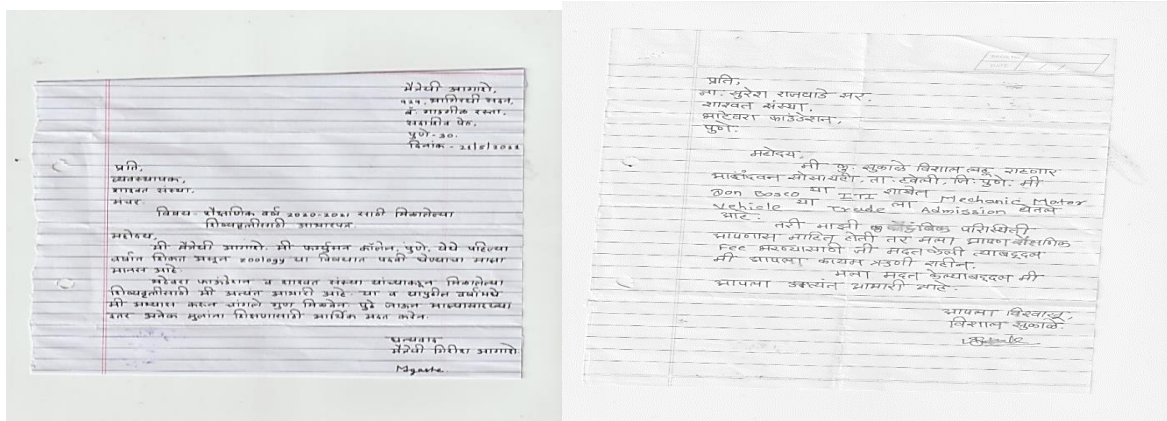 मैत्रेयी आगाशे,
सदाशिव पेठ,
पुणे-30.
प्रति,
व्यवस्थापक,
शाश्वत संस्था,
मंचर.
विषय- शैक्षणिक वर्ष 2020-2021 साठी मिळालेल्या
शिष्यवृत्तीसाठी आभारपत्र.
महोदय,
मी मैत्रेयी आगाशे. मी फर्ग्युसन कॉलेज, पुणे, येथे पहिल्या
वर्षात शिकत असून zoology या विषयात पदवी घेण्याचा माझा
मानस आहे.
भाटेवरा फाऊंडेशन व शाश्वत संस्था यांच्याकडून मिळालेल्या
शिष्यवृत्तीसाठी मी अत्यंत आभारी आहे. या व यापुढील वर्षांमध्ये
मी अभ्यास करून चांगले गुण मिळवेन. पुढे जाऊन माझ्यासारख्या
इतर अनेक मुलांना शिक्षणासाठी आर्थिक मदत करेन.
धन्यवाद
मैत्रेयी गिरीश आगाशे.
Magashe.
प्रति,
मा. सुरेश राजवाडे सर.
शाश्वत संस्था.
भाटेवरा फाउंडेशन,
पुणे.
महोदय,
मी कु सुकाळे विशाल लहू राहणार
सोसायटी, ता. हवेली, जि. पुणे. मी
Don Bosco या ITI शाखेत Mechanic Motor
Vehicle या Trade ला Admission घेतले
आहे.
तरी माझी कौटुंबिक परिस्थिती
आपणास माहित होती तर मला आपण शैक्षणिक
Fee भरण्यासाठी जी मदत केली त्याबद्दल
मी आपला कायम ऋणी राहीन.
मला मदत केल्याबद्दल मी
आपला अत्यंत आभारी आहे.
आपला विश्वासू,
विशाल सुकाळे.